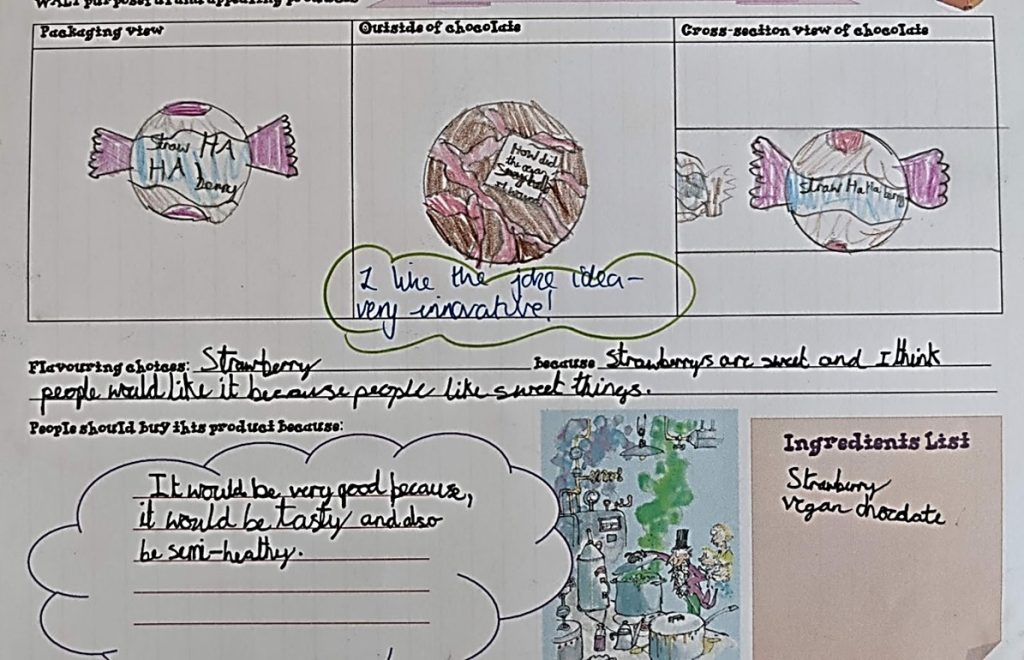 WALT purposeful and appealing products
Packaging view
Outside of chocolate
Cross-section view of chocolate
Straw HA
HA berry
How did
the ocean
Say hello
It waved
Straw Ha Ha berry
I like the joke idea-
very innovative!
Flavouring choices: Strawberry because Strawberrys are sweet and I think
people would like it because people like sweet things.
People should buy this product because:
It would be very good because,
it would be tasty and also
be semi-healthy.
Ingredients List
Strawburry
vegan chocolate